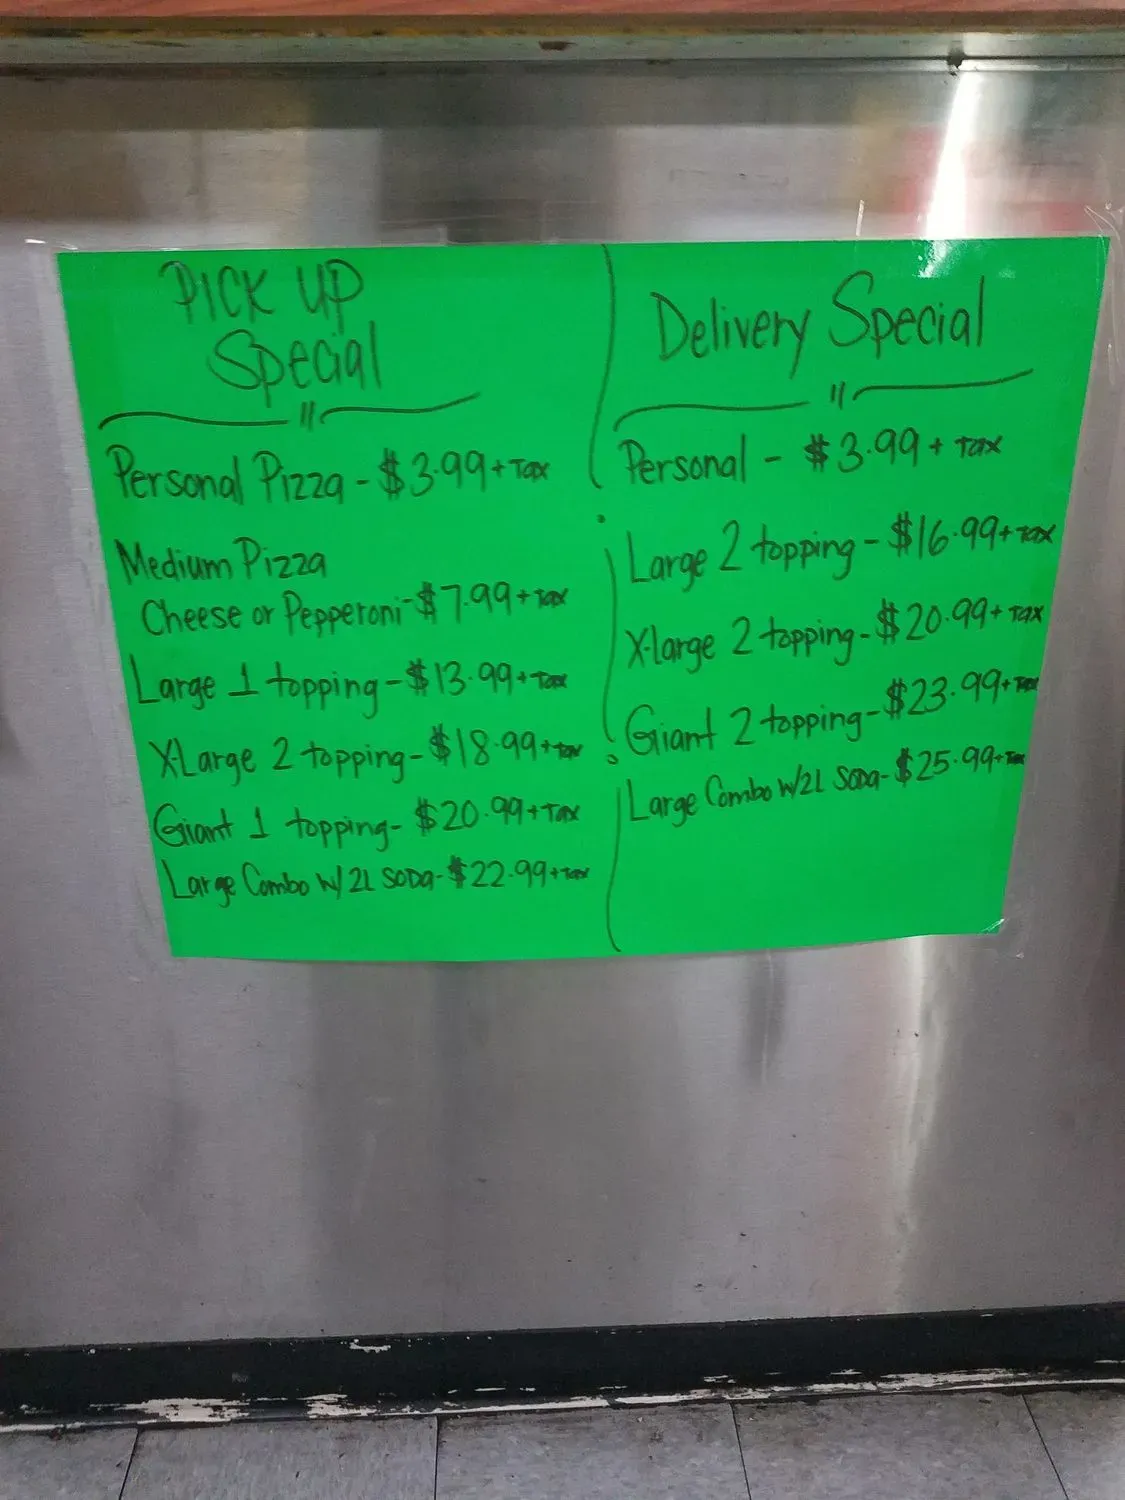 PICK UP
Special
Personal Pizza - $3.99 + Tax
Medium Pizza
Cheese or Pepperoni - $7.99 + Tax
Large 1 topping - $13.99 + Tax
X-Large 2 topping - $18.99 + Tax
Giant 1 topping - $20.99 + Tax
Large Combo w/ 2L SODA - $22.99 + Tax
Delivery Special
Personal - $3.99 + Tax
Large 2 topping - $16.99 + Tax
X-large 2 topping - $20.99 + Tax
Giant 2 topping - $23.99 + Tax
Large Combo w/2L SODA - $25.99 + Tax